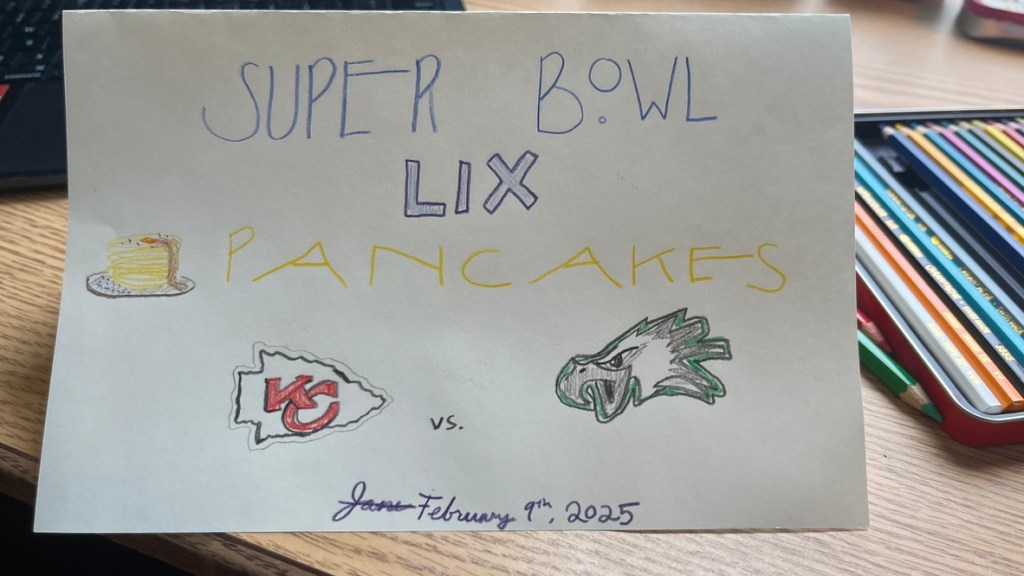 SUPER BOWL
LIX
PANCAKES
KC
vs.
Jan February 9th, 2025